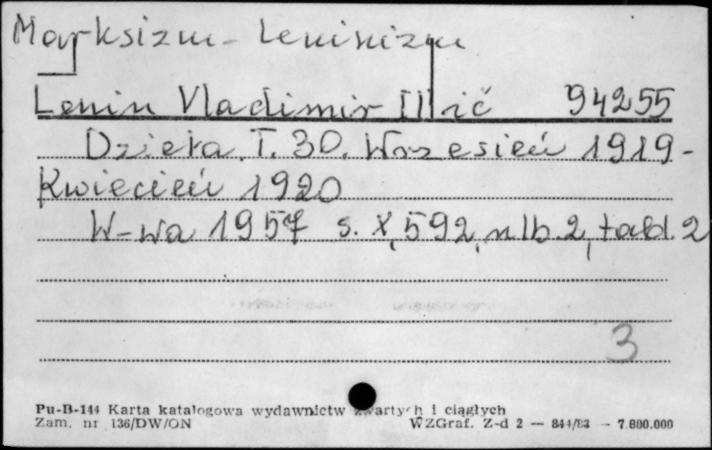 Marksizm-Leninizm
Lenin Vladimir Il'ič 94255
Dzieła. T. 30. Wrzesień 1919-
Kwiecień 1920
W-wa 1957 s. X, 592, nlb. 2, tabl. 2
3
Pu-B-144 Karta katalogowa wydawnictw zwartych i ciągłych
Zam. nr 136/DW/ON WZGraf. Z-d 2 — 844/83 - 7.800.000